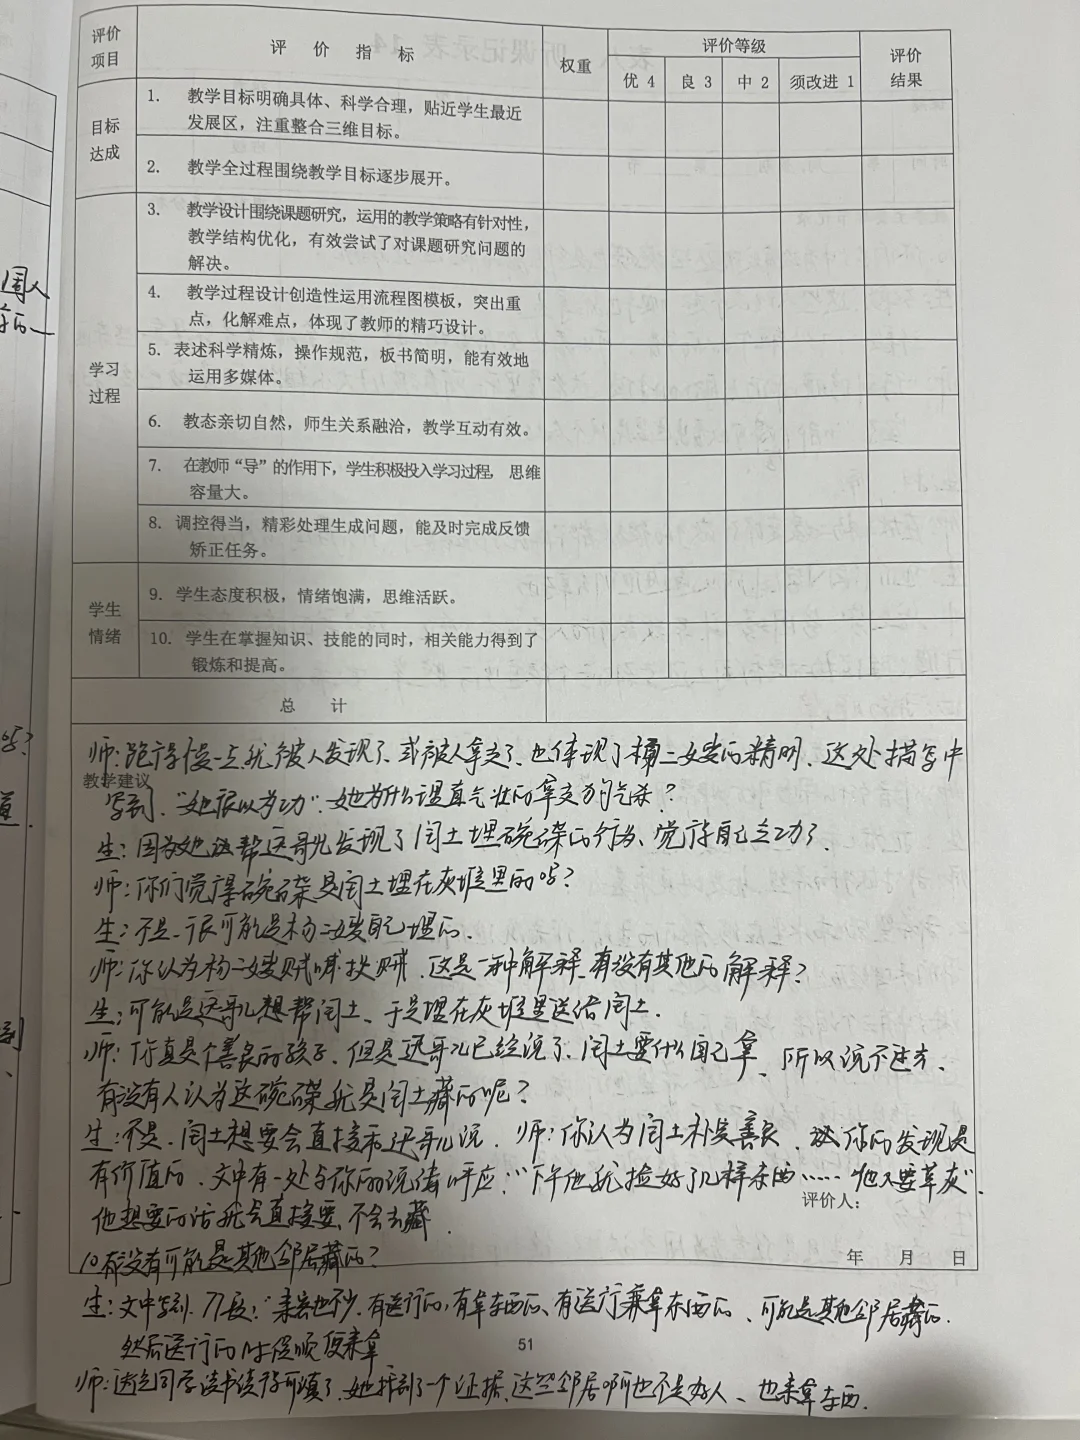 评价项目 评价指标 权重 评价等级 评价结果
优 4 良 3 中 2 须改进 1
目标达成
1. 教学目标明确具体、科学合理，贴近学生最近
发展区，注重整合三维目标。
2. 教学全过程围绕教学目标逐步展开。
学习过程
3. 教学设计围绕课题研究，运用的教学策略有针对性，
教学结构优化，有效尝试了对课题研究问题的
解决。
4. 教学过程设计创造性运用流程图模板，突出重
点，化解难点，体现了教师的精巧设计。
5. 表述科学精炼，操作规范，板书简明，能有效地
运用多媒体。
6. 教态亲切自然，师生关系融洽，教学互动有效。
7. 在教师“导”的作用下，学生积极投入学习过程，思维
容量大。
8. 调控得当，精彩处理生成问题，能及时完成反馈
矫正任务。
学生情绪
9. 学生态度积极，情绪饱满，思维活跃。
10. 学生在掌握知识、技能的同时，相关能力得到了
锻炼和提高。
总计
师：跑得慢一点就被人发现了、或被人拿走了、也体现了杨二嫂的精明、这处描写中
教学建议
写到、“她很以为功”她为什么理直气壮的拿走狗气杀？
生：因为她帮迅哥儿发现了闰土埋碗碟的行为、觉得自己立功了.
师：你们觉得碗碟是闰土埋在灰堆里的吗？
生：不是、很可能是杨二嫂自己埋的.
师：你认为杨二嫂贼喊捉贼、这是一种解释、有没有其他的解释？
生：可能是迅哥儿想帮闰土、于是埋在灰堆里送给闰土.
师：你真是个善良的孩子、但是迅哥儿已经说了、闰土要什么自己拿、所以说不过去、
有没有人认为这碗碟就是闰土藏的呢？
生：不是、闰土想要会直接和迅哥儿说. 师：你认为闰土朴实善良、你的发现是
有价值的、文中有一处与你的说法呼应：“下午他就捡好了几样东西……他又要草灰”.
他想要的话就会直接要、不会去藏.
评价人：
10.有没有可能是其他邻居藏的？
年 月 日
生：文中写到、77段：“来客也不少、有送行的，有拿东西的、有送行兼拿东西的、可能是其他邻居藏的.
然后送行的时候顺便来拿
51
师：这位同学读书读得可真了、她找到了一个证据、这些邻居啊也不是好人、也来拿东西.
周人
吗？